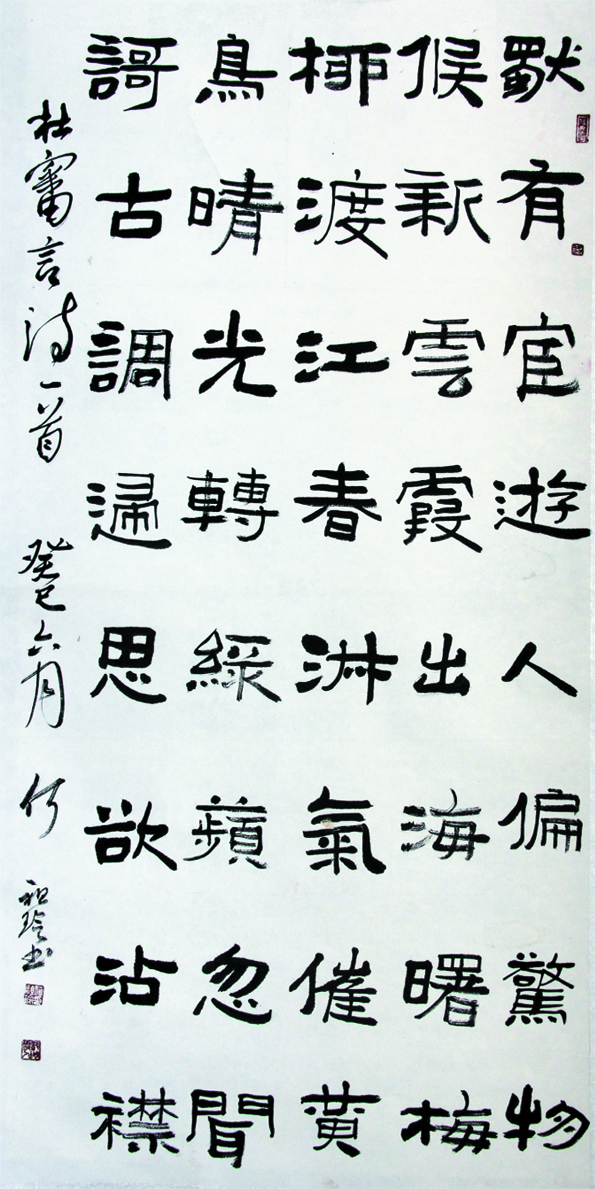 獨有宦遊人偏驚物
候新雲霞出海曙梅
柳渡江春淋氣催黃
鳥晴光轉綠蘋忽聞
謌古調歸思欲沾襟
杜審言詩一首 癸巳六月 何 玲书